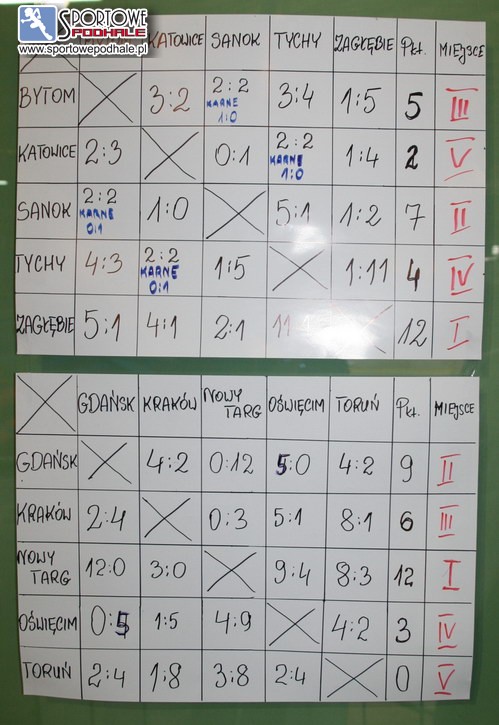 SPORTOWE
PODHALE
www.sportowepodhale.pl
KATOWICE SANOK TYCHY ZAGŁĘBIE Pkt. MIEJSCE
BYTOM 3:2 2:2 KARNE 1:0 3:4 1:5 5 III
KATOWICE 2:3 0:1 2:2 KARNE 1:0 1:4 2 V
SANOK 2:2 KARNE 0:1 1:0 5:1 1:2 7 II
TYCHY 4:3 2:2 KARNE 0:1 1:5 1:11 4 IV
ZAGŁĘBIE 5:1 4:1 2:1 11 12 I
GDAŃSK KRAKÓW NOWY TARG OŚWIĘCIM TORUŃ Pkt. MIEJSCE
GDAŃSK 4:2 0:12 5:0 4:2 9 II
KRAKÓW 2:4 0:3 5:1 8:1 6 III
NOWY TARG 12:0 3:0 9:4 8:3 12 I
OŚWIĘCIM 0:5 1:5 4:9 4:2 3 IV
TORUŃ 2:4 1:8 3:8 2:4 0 V